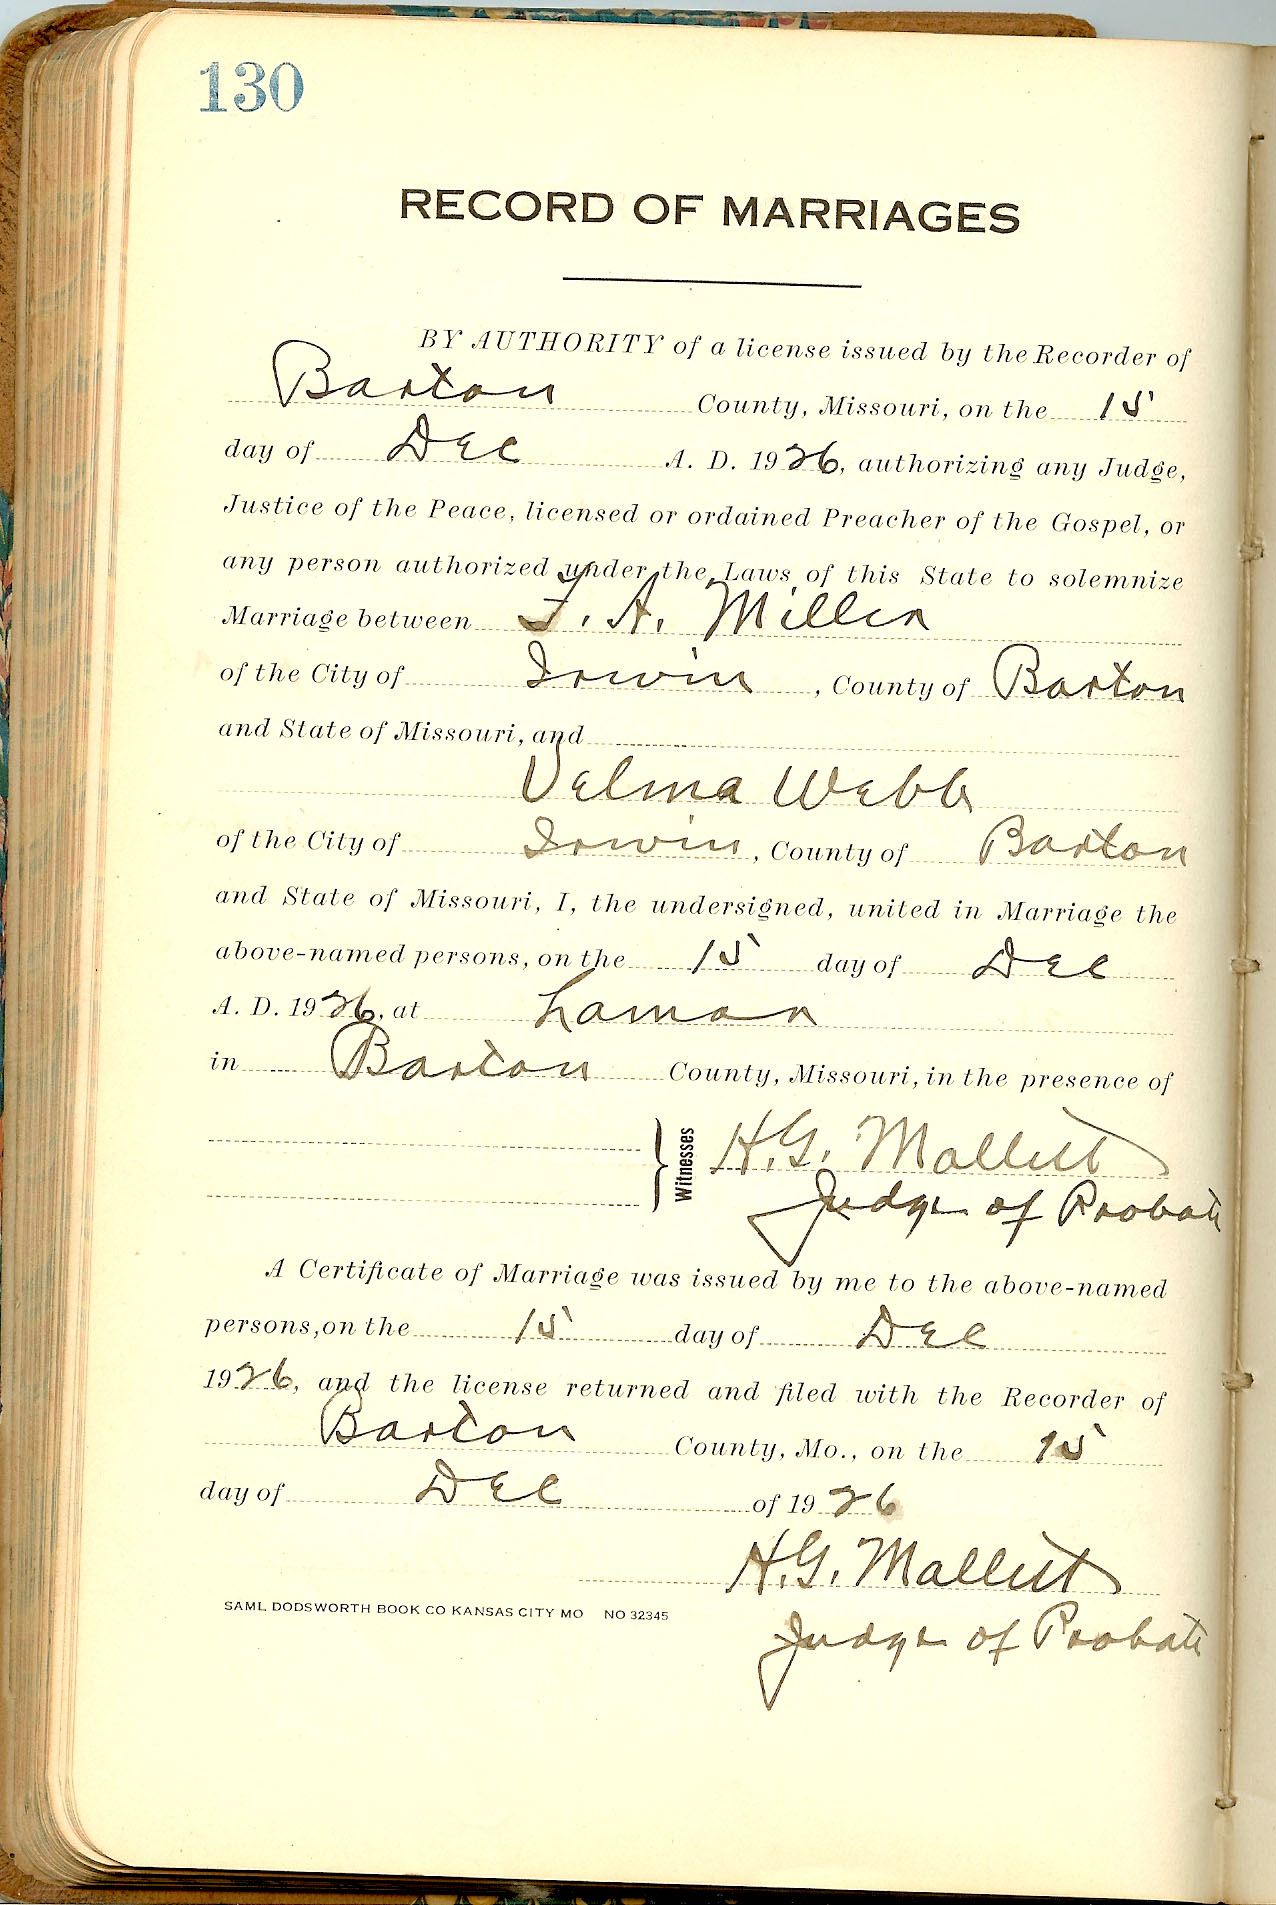 130
RECORD OF MARRIAGES
BY AUTHORITY of a license issued by the Recorder of
Barton County, Missouri, on the 15
day of Dec A. D. 1926, authorizing any Judge,
Justice of the Peace, licensed or ordained Preacher of the Gospel, or
any person authorized under the Laws of this State to solemnize
Marriage between F. A. Miller
of the City of Irwin, County of Barton
and State of Missouri, and
Velma Webb
of the City of Irwin, County of Barton
and State of Missouri, I, the undersigned, united in Marriage the
above-named persons, on the 15 day of Dec
A. D. 1926, at Lamar
in Barton County, Missouri, in the presence of
Witnesses H. G. Mallett
Judge of Probate
A Certificate of Marriage was issued by me to the above-named
persons, on the 15 day of Dec
1926, and the license returned and filed with the Recorder of
Barton County, Mo., on the 15
day of Dec of 1926
H. G. Mallett
SAML DODSWORTH BOOK CO KANSAS CITY MO NO 32345
Judge of Probate